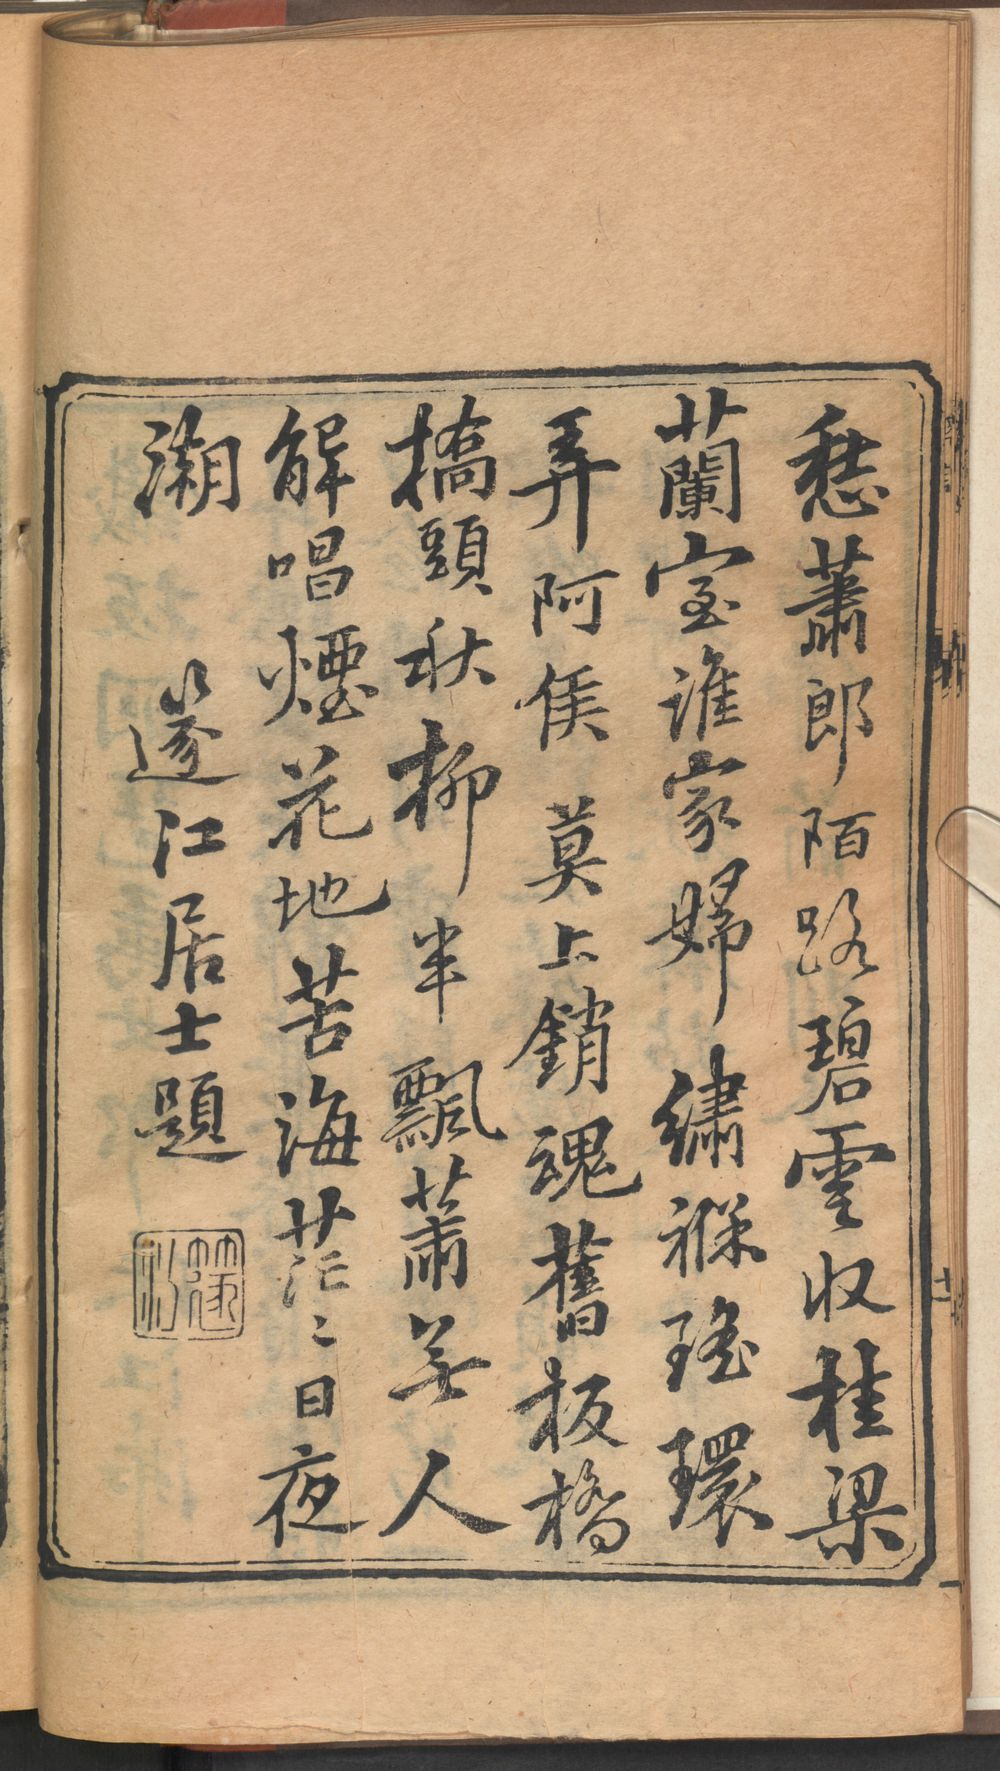 愁蕭郎陌路碧雲收桂梁
蘭室誰家婦繡褓瑤環
弄阿侯莫上銷魂舊板橋
橋頭秋柳半飄蕭無人
解唱煙花地苦海茫〻日夜
潮　邃江居士題